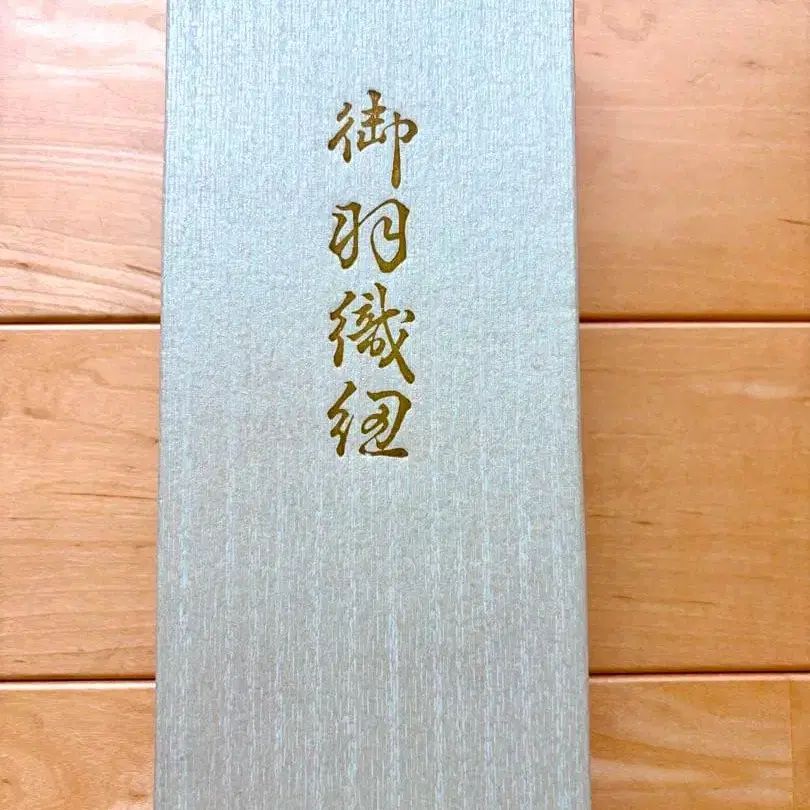 御羽織紐